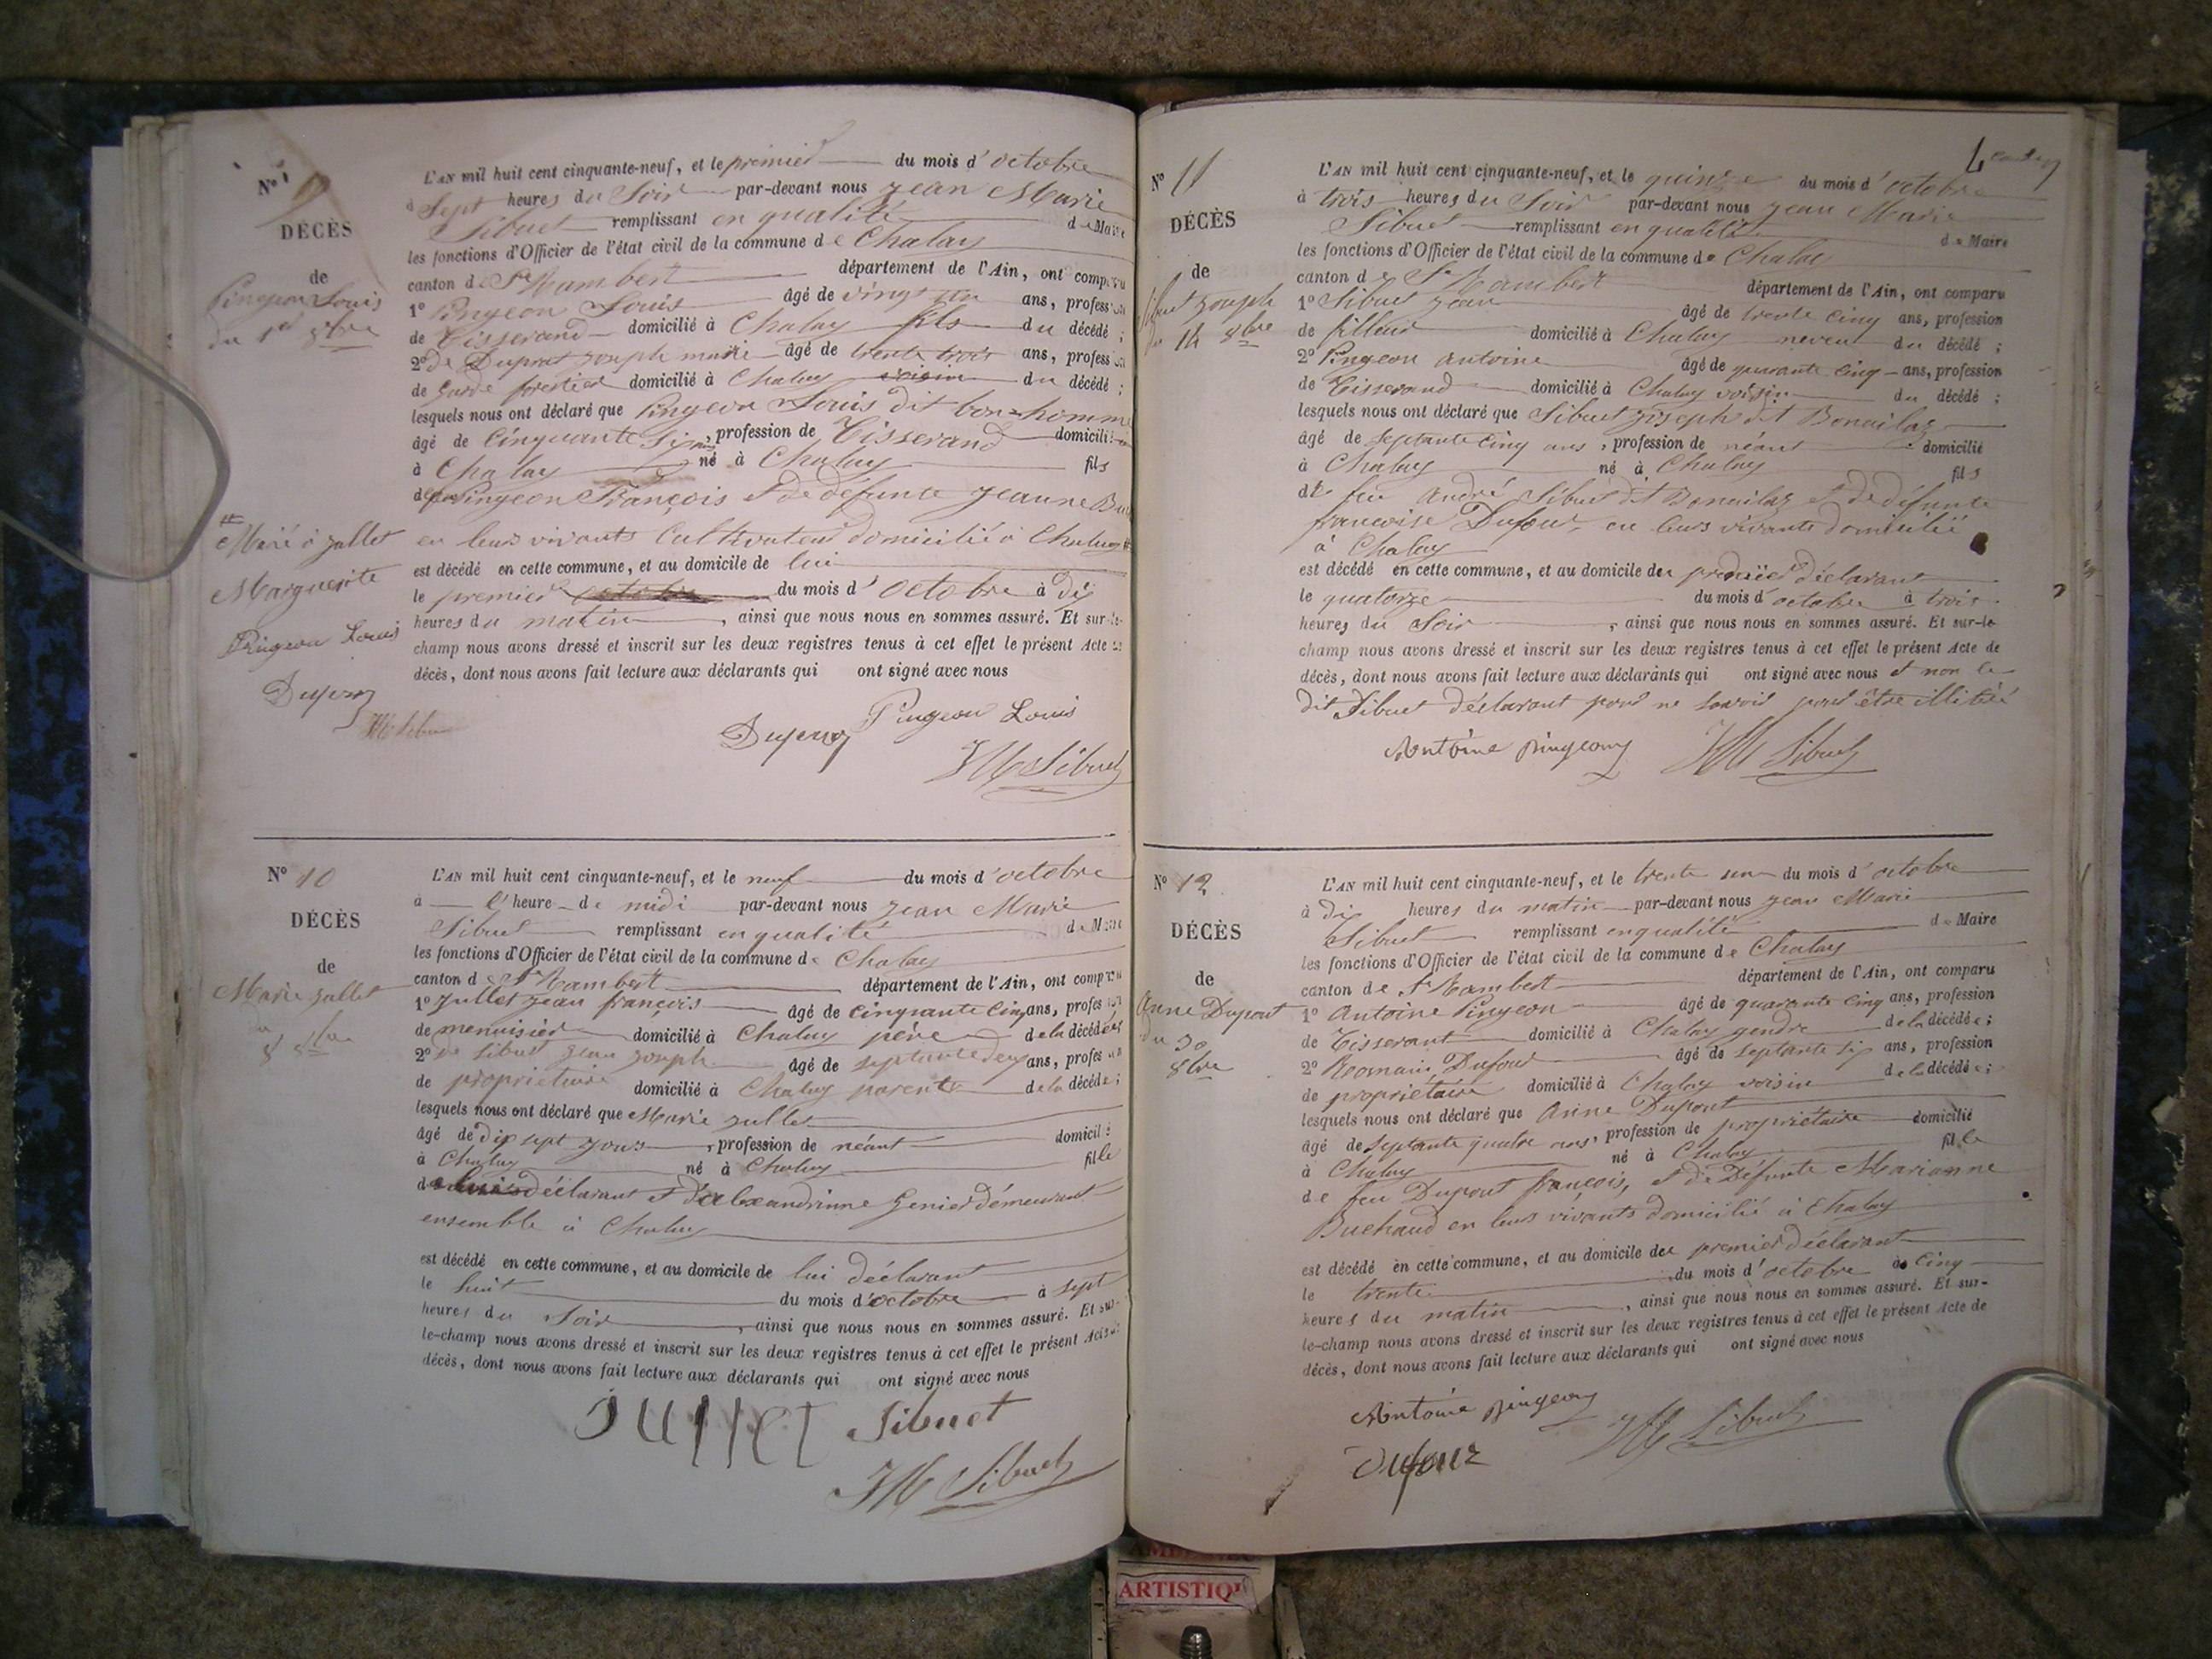 N° 9
DÉCÈS
de
Pingeon Louis
du 1er 8bre
L'AN mil huit cent cinquante-neuf, et le premier du mois d'octobre
à Sept heures du Soir par-devant nous Jean Marie
Sibuet remplissant en qualité de Maire
les fonctions d'Officier de l'état civil de la commune de Chalay
canton de St Rambert département de l'Ain, ont comparu
1° Pingeon Louis âgé de vingt un ans, profession
de Tisserand domicilié à Chalay fils du décédé ;
2° de Duprat Joseph marie âgé de trente trois ans, profession
de garde forestier domicilié à Chalay voisin du décédé ;
lesquels nous ont déclaré que Pingeon Louis dit bon-homme
âgé de Cinquante Six ans, profession de Tisserand domicilié
à Chalay né à Chalay fils
de feu Pingeon François et de défunte Jeanne
en leurs vivants Cultivateur domicilié à Chalay #
est décédé en cette commune, et au domicile de lui
le premier octobre du mois d'octobre à dix
heures du matin, ainsi que nous nous en sommes assuré. Et sur-le-
champ nous avons dressé et inscrit sur les deux registres tenus à cet effet le présent Acte de
décès, dont nous avons fait lecture aux déclarants qui ont signé avec nous
# Marié à Jullet
Marguerite
Pingeon Louis
JM Sibuet
Pingeon Louis
JM Sibuet
N° 10
DÉCÈS
de
Marie Jullet
du
8 8bre
L'AN mil huit cent cinquante-neuf, et le neuf du mois d'octobre
à l'heure de midi par-devant nous Jean Marie
Sibuet remplissant en qualité de Maire
les fonctions d'Officier de l'état civil de la commune de Chalay
canton de St Rambert département de l'Ain, ont comparu
1° Jullet Jean françois âgé de cinquante cinq ans, profession
de menuisier domicilié à Chalay père de la décédée
2° de Sibuet Jean Joseph âgé de septante deux ans, profession
de propriétaire domicilié à Chalay parente de la décédée ;
lesquels nous ont déclaré que Marie Jullet
âgé de dix sept jours, profession de néant domicilié
à Chalay né à Chalay fille
de déclarant et d'alexandrinne Genier démeurant
ensemble à Chalay
est décédé en cette commune, et au domicile de lui déclarant
le huit du mois d'octobre à sept
heures du Soir, ainsi que nous nous en sommes assuré. Et sur-
le-champ nous avons dressé et inscrit sur les deux registres tenus à cet effet le présent Acte de
décès, dont nous avons fait lecture aux déclarants qui ont signé avec nous
JULLET Sibuet
JM Sibuet
N° 11
DÉCÈS
de
Sibuet Joseph
du 14 8bre
L'AN mil huit cent cinquante-neuf, et le quinze du mois d'octobre
à trois heures du Soir par-devant nous Jean Marie
Sibuet remplissant en qualité de Maire
les fonctions d'Officier de l'état civil de la commune de Chalay
canton de St Rambert département de l'Ain, ont comparu
1° Sibuet Jean âgé de trente cinq ans, profession
de filleur domicilié à Chalay neveu du décédé ;
2° Pingeon Antoine âgé de quarante cinq ans, profession
de Tisserand domicilié à Chalay voisin du décédé ;
lesquels nous ont déclaré que Sibuet Joseph dit Bonailaz
âgé de septante cinq ans, profession de néant domicilié
à Chalay né à Chalay fils
de feu André Sibuet dit Bonailaz et de défunte
francoise Dufour en leurs vivants domicilié
à Chalay
est décédé en cette commune, et au domicile du premier déclarant
le quatorze du mois d'octobre à trois
heures du Soir, ainsi que nous nous en sommes assuré. Et sur-le-
champ nous avons dressé et inscrit sur les deux registres tenus à cet effet le présent Acte de
décès, dont nous avons fait lecture aux déclarants qui ont signé avec nous et non le
dit Sibuet déclarant pour ne savoir pour être illitéré
Antoine pingeon JM Sibuet
N° 12
DÉCÈS
de
Anne Dupont
du 30
8bre
L'AN mil huit cent cinquante-neuf, et le trente un du mois d'octobre
à dix heures du matin par-devant nous Jean Marie
Sibuet remplissant en qualité de Maire
les fonctions d'Officier de l'état civil de la commune de Chalay
canton de St Rambert département de l'Ain, ont comparu
1° Antoine Pingeon âgé de quarante cinq ans, profession
de Tisserant domicilié à Chalay gendre de la décédée ;
2° Romain Dufour âgé de septante six ans, profession
de propriétaire domicilié à Chalay voisin de la décédée ;
lesquels nous ont déclaré que Anne Dupont
âgé de septante quatre ans, profession de propriétaire domicilié
à Chalay né à Chalay fille
de feu Dupont françois, et de Défunte Marianne
Buchaud en leurs vivants domicilié à Chalay
est décédé en cette commune, et au domicile du premier déclarant
le trente du mois d'octobre à Cinq
heures du matin, ainsi que nous nous en sommes assuré. Et sur-
le-champ nous avons dressé et inscrit sur les deux registres tenus à cet effet le présent Acte de
décès, dont nous avons fait lecture aux déclarants qui ont signé avec nous
Antoine pingeon JM Sibuet
Dufour
ARTISTIQU